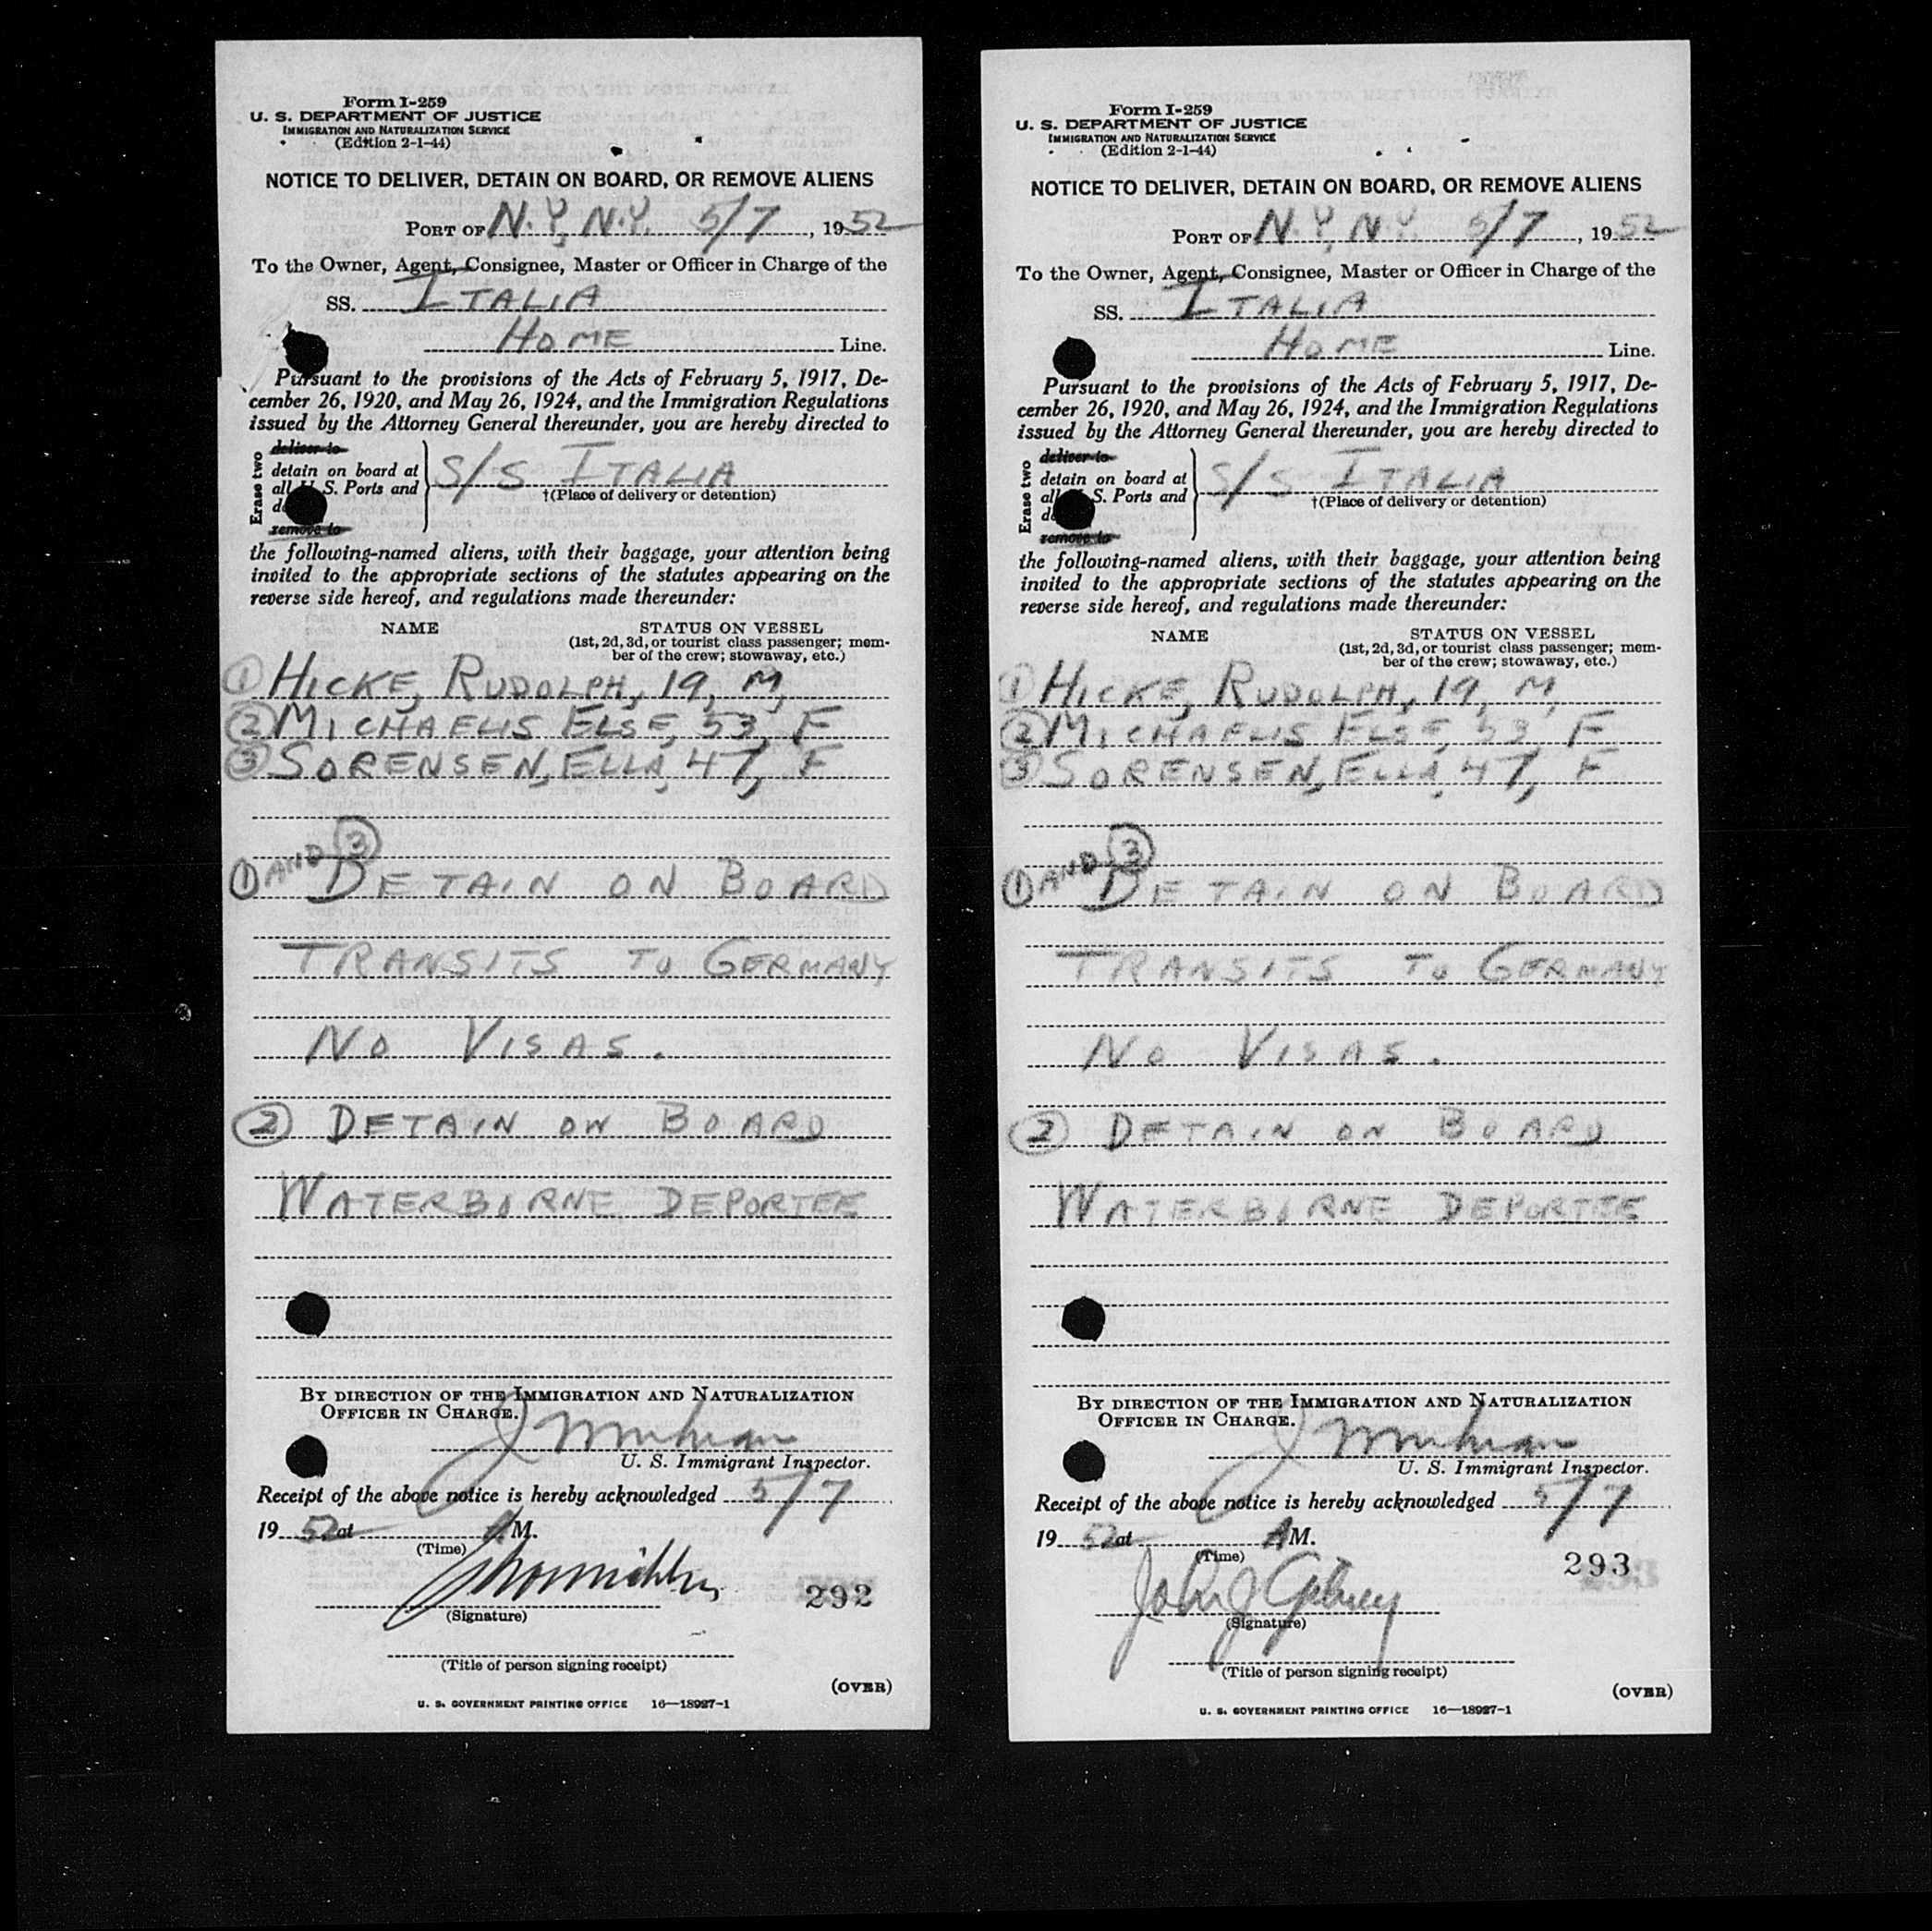 Form I-259
U. S. DEPARTMENT OF JUSTICE
IMMIGRATION AND NATURALIZATION SERVICE
(Edition 2-1-44)
NOTICE TO DELIVER, DETAIN ON BOARD, OR REMOVE ALIENS
PORT OF N.Y, N.Y. 5/7, 1952
To the Owner, Agent, Consignee, Master or Officer in Charge of the
SS. ITALIA
HOME Line.
Pursuant to the provisions of the Acts of February 5, 1917, De-
cember 26, 1920, and May 26, 1924, and the Immigration Regulations
issued by the Attorney General thereunder, you are hereby directed to
Erase two
deliver to
detain on board at
all U. S. Ports and
S/S ITALIA
†(Place of delivery or detention)
remove to
the following-named aliens, with their baggage, your attention being
invited to the appropriate sections of the statutes appearing on the
reverse side hereof, and regulations made thereunder:
NAME STATUS ON VESSEL
(1st, 2d, 3d, or tourist class passenger; mem-
ber of the crew; stowaway, etc.)
① HICKE, RUDOLPH, 19, M,
② MICHAELIS ELSE, 53, F
③ SORENSEN, ELLA, 47, F
① AND ③
DETAIN ON BOARD
TRANSITS TO GERMANY
NO VISAS.
② DETAIN ON BOARD
WATERBORNE DEPORTEE
BY DIRECTION OF THE IMMIGRATION AND NATURALIZATION
OFFICER IN CHARGE.
U. S. Immigrant Inspector.
Receipt of the above notice is hereby acknowledged 5/7
1952 at A M.
(Time)
292
(Signature)
(Title of person signing receipt)
(OVER)
U. S. GOVERNMENT PRINTING OFFICE 16—18927-1
Form I-259
U. S. DEPARTMENT OF JUSTICE
IMMIGRATION AND NATURALIZATION SERVICE
(Edition 2-1-44)
NOTICE TO DELIVER, DETAIN ON BOARD, OR REMOVE ALIENS
PORT OF N.Y, N.Y. 5/7, 1952
To the Owner, Agent, Consignee, Master or Officer in Charge of the
SS. ITALIA
HOME Line.
Pursuant to the provisions of the Acts of February 5, 1917, De-
cember 26, 1920, and May 26, 1924, and the Immigration Regulations
issued by the Attorney General thereunder, you are hereby directed to
Erase two
deliver to
detain on board at
all U. S. Ports and
S/S ITALIA
†(Place of delivery or detention)
remove to
the following-named aliens, with their baggage, your attention being
invited to the appropriate sections of the statutes appearing on the
reverse side hereof, and regulations made thereunder:
NAME STATUS ON VESSEL
(1st, 2d, 3d, or tourist class passenger; mem-
ber of the crew; stowaway, etc.)
① HICKE, RUDOLPH, 19, M,
② MICHAELIS ELSE, 53, F
③ SORENSEN, ELLA, 47, F
① AND ③
DETAIN ON BOARD
TRANSITS TO GERMANY
NO VISAS.
② DETAIN ON BOARD
WATERBORNE DEPORTEE
BY DIRECTION OF THE IMMIGRATION AND NATURALIZATION
OFFICER IN CHARGE.
U. S. Immigrant Inspector.
Receipt of the above notice is hereby acknowledged 5/7
1952 at A M.
(Time)
293
John J
(Signature)
(Title of person signing receipt)
(OVER)
U. S. GOVERNMENT PRINTING OFFICE 16—18927-1